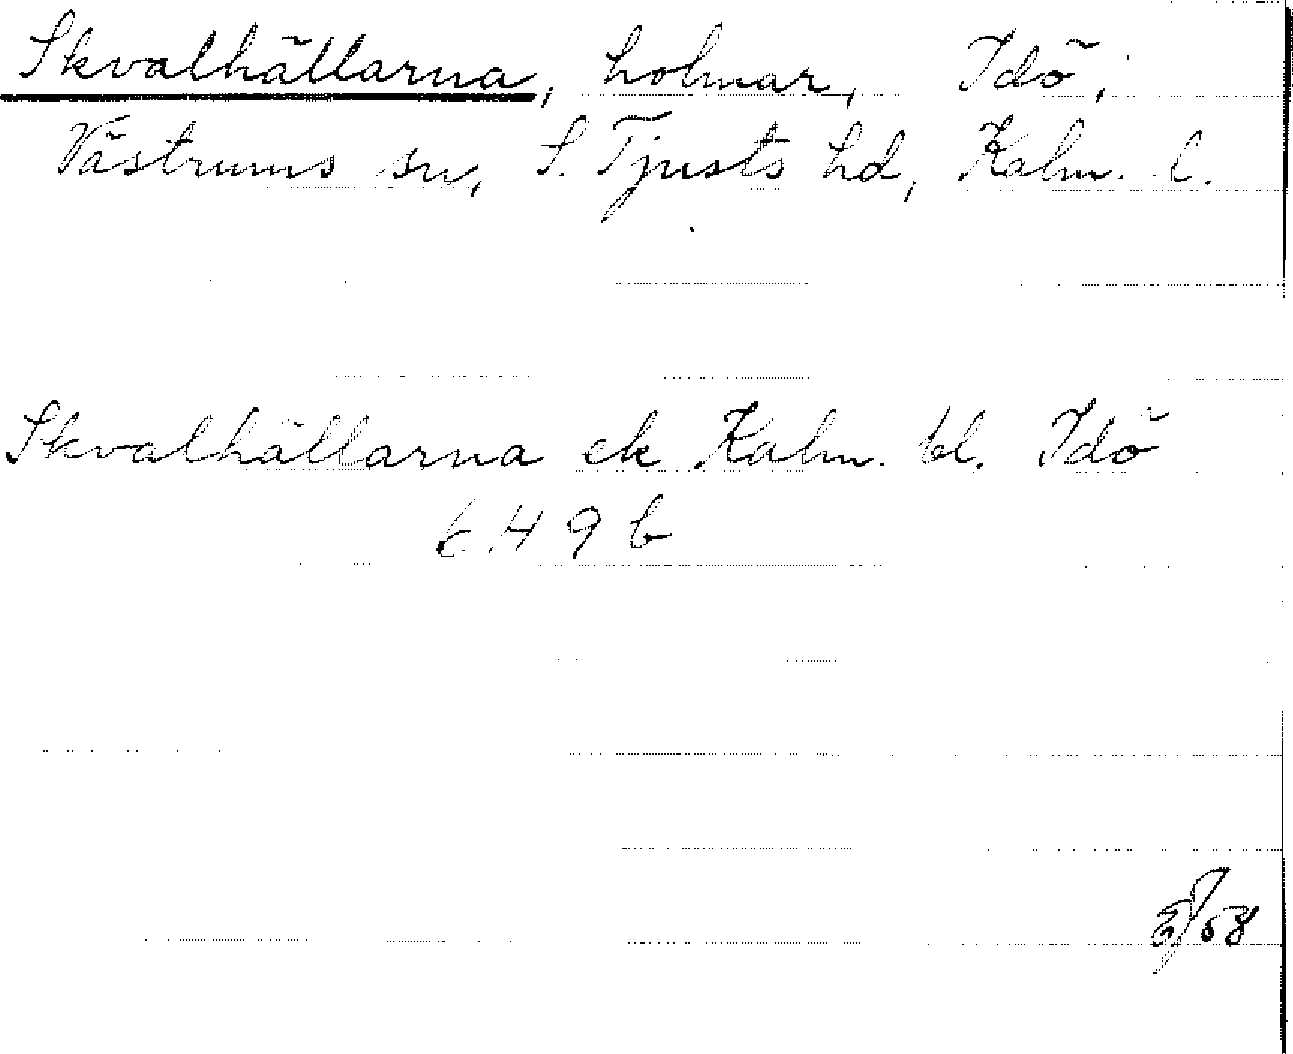 Skvalhällarna, holmar, Idö,
Västrums sn, S. Tjusts hd, Kalm. l.
Skvalhällarna ek Kalm. bl. Idö
6 H 9 b
/58